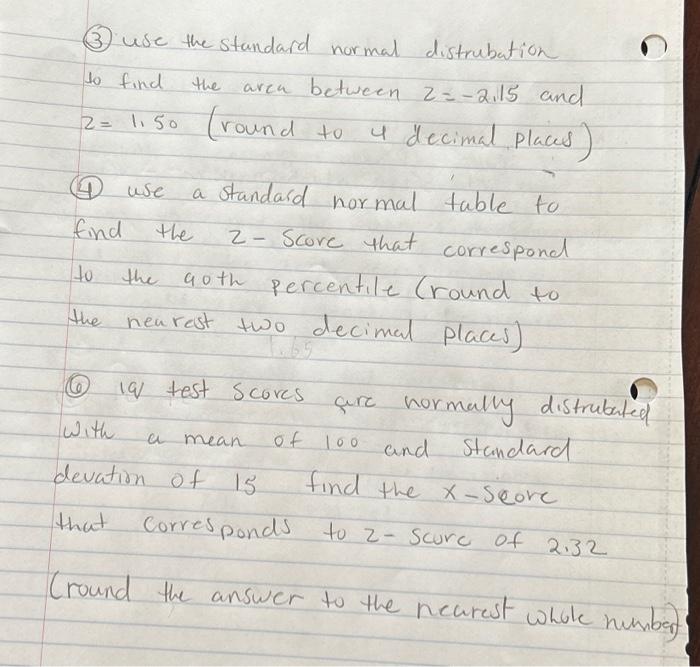 ③ use the standard normal distrubation
to find the area between z = -2.15 and
z = 1.50 (round to 4 decimal places)
④ use a standard normal table to
find the z - score that correspond
to the 90th percentile (round to
the nearest two decimal places)
1.65
⑥ iq test scores are normally distrubated
with a mean of 100 and standard
devation of 15 find the x-score
that corresponds to z-score of 2.32
(round the answer to the nearest whole number)